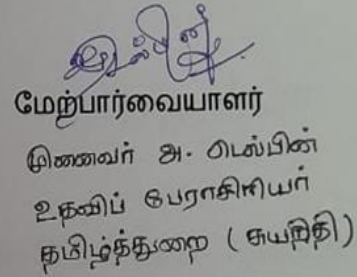 மேற்பார்வையாளர்
முனைவர் அ. டெல்பின்
உதவிப் பேராசிரியர்
தமிழ்த்துறை ( சுயநிதி )